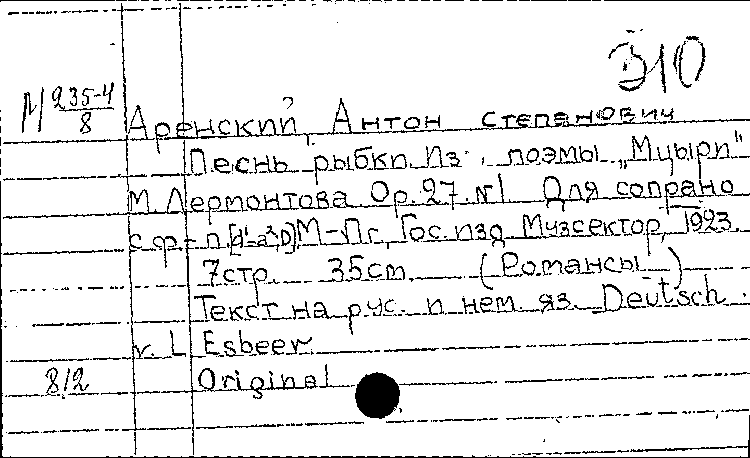 Э10
М 235-4
8
Аренский, Антон Степанович
Песнь рыбки. Из поэмы „Мцыри"
М. Лермонтова Op. 27. №1 Для сопрано
с ф.-п. [d¹-a²,D] М-Пг, Гос. изд. Музсектор, 1923.
7 стр. 35 cm. (Романсы)
Текст на рус. и нем. яз. Deutsch
v. L Esbeer
812 Original